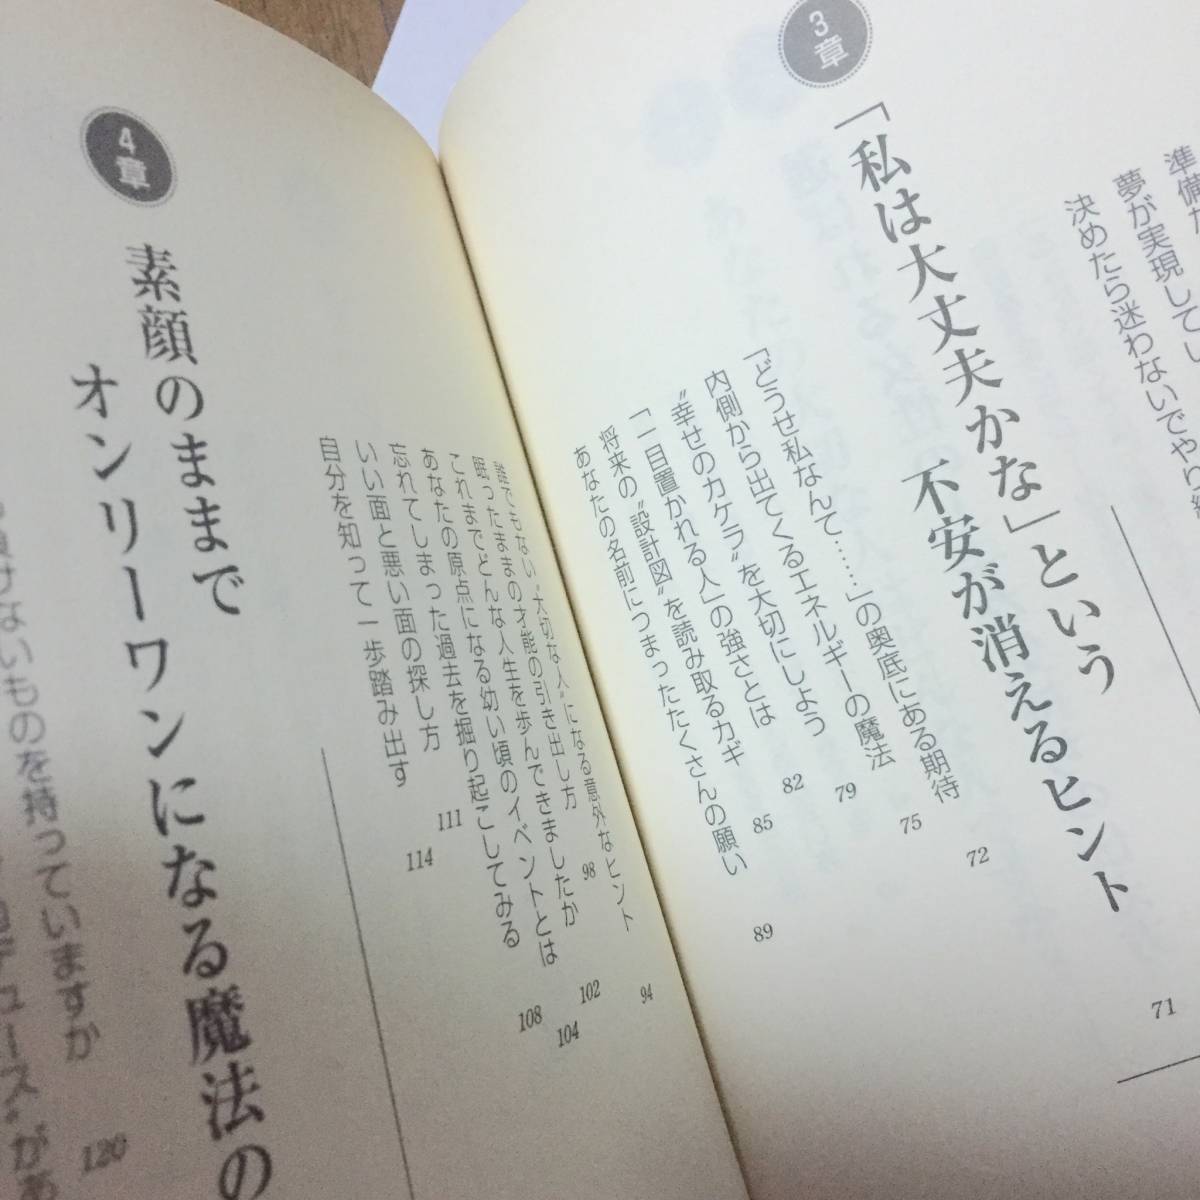 準備
夢が実現してい
決めたら迷わないでやり
3章
「私は大丈夫かな」という
不安が消えるヒント 71
「どうせ私なんて……」の奥底にある期待 72
内側から出てくるエネルギーの魔法 75
〝幸せのカケラ〟を大切にしよう 79
「一目置かれる人」の強さとは 82
将来の〝設計図〟を読み取るカギ 85
あなたの名前につまったたくさんの願い 89
誰でもない〝大切な人〟になる意外なヒント 94
眠ったままの才能の引き出し方 98
これまでどんな人生を歩んできましたか 102
あなたの原点になる幼い頃のイベントとは 104
忘れてしまった過去を掘り起こしてみる 108
いい面と悪い面の探し方 111
自分を知って一歩踏み出す 114
4章
素顔のままで
オンリーワンになる魔法の
負けないものを持っていますか 120
デュース〟があ